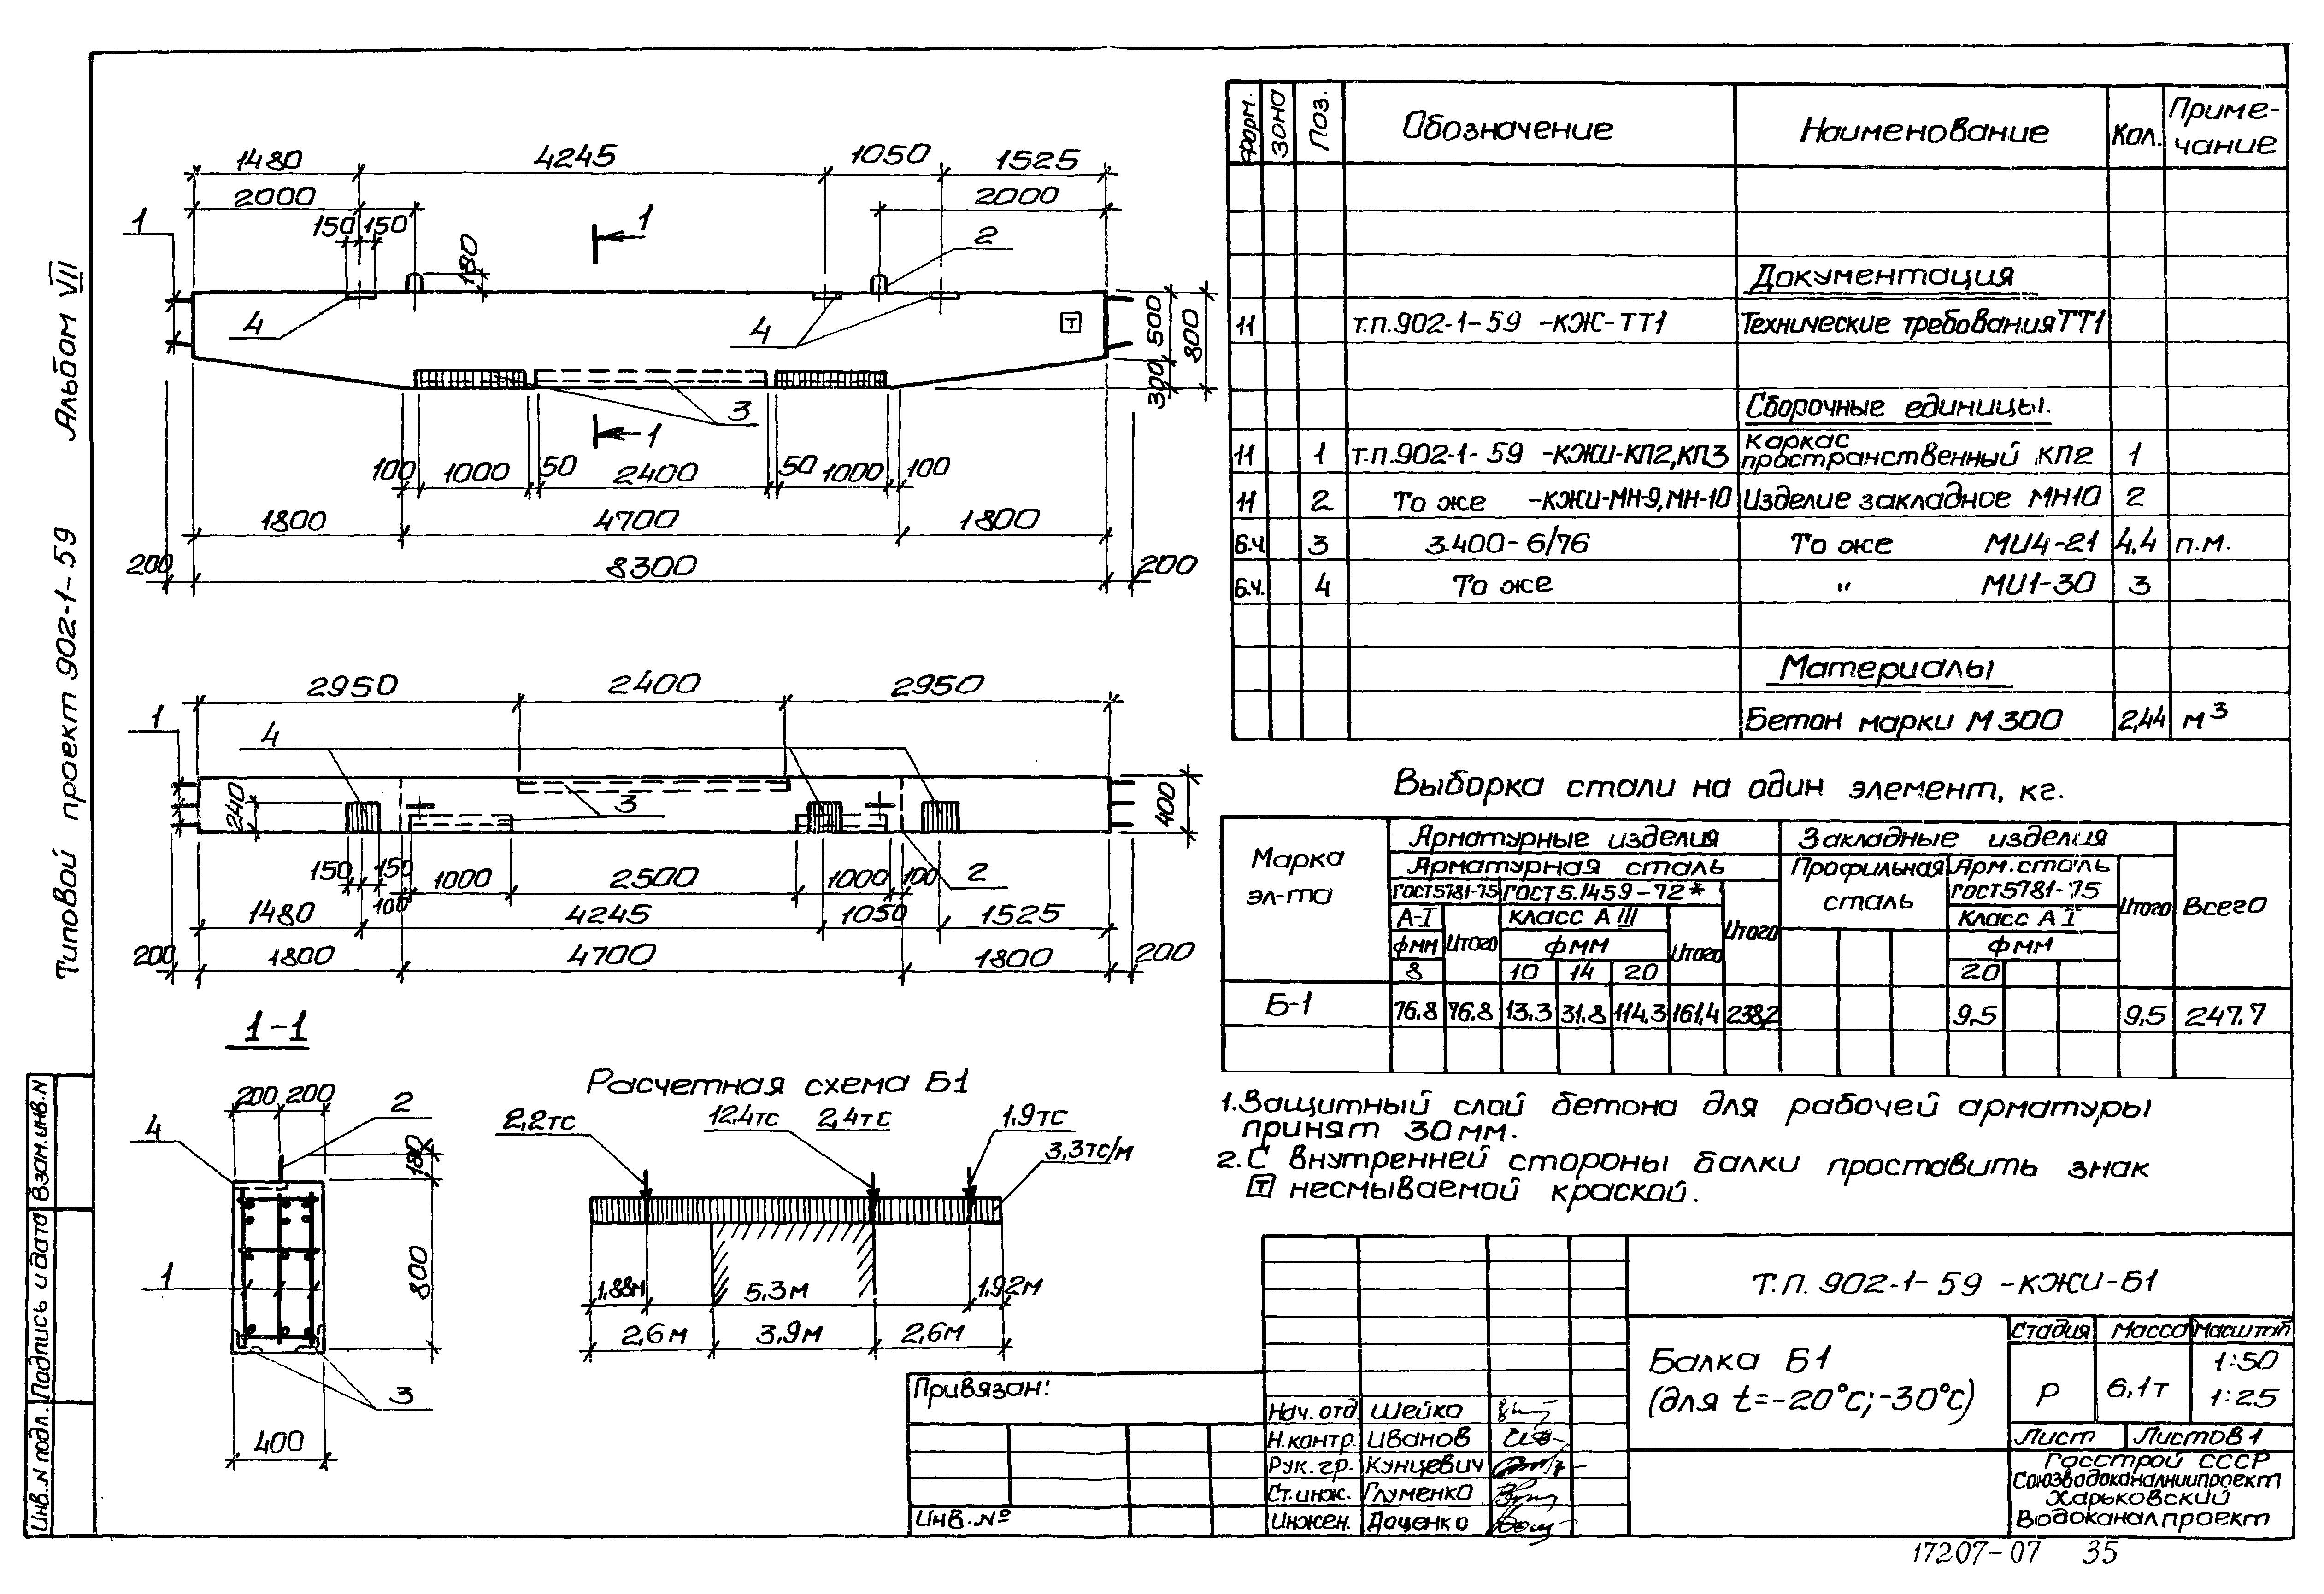 Альбом VII
Типовой проект 902-1-59
Инв.N подл.
Подпись и дата
Взам.инв.N
1480
4245
1050
1525
2000
2000
150
150
180
1
1
2
4
4
Т
500
300
800
3
1
100
1000
50
2400
50
1000
100
1800
4700
1800
200
8300
200
2950
2400
2950
1
4
240
3
400
150
150
1000
2500
1000
100
2
100
1480
4245
1050
1525
200
1800
4700
1800
200
1-1
200
200
2
4
180
1
800
3
400
Расчетная схема Б1
2,2тс
12,4тс
2,4тс
1,9тс
3,3тс/м
1,88м
5,3м
1,92м
2,6м
3,9м
2,6м
Форм.
Зона
Поз.
Обозначение
Наименование
Кол.
Приме-
чание
Документация
11 т.п.902-1-59 -КЖ-ТТ1 Технические требования ТТ1
Сборочные единицы.
11 1 т.п.902-1-59 -КЖИ-КП2,КП3 Каркас пространственный КП2 1
11 2 То же -КЖИ-МН-9,МН-10 Изделие закладное МН10 2
Б.Ч 3 3.400-6/76 То же МИ4-21 4,4 п.м.
Б.Ч. 4 То же " МИ1-30 3
Материалы
Бетон марки М300 2,44 м3
Выборка стали на один элемент, кг.
Марка
эл-та
Арматурные изделия
Закладные изделия
Арматурная сталь
Профильная
сталь
Арм.сталь
ГОСТ5781-75
ГОСТ5781-75 ГОСТ5.1459-72*
Итого
Итого
Всего
А-I
Итого
класс А III
Итого
класс А I
фмм
фмм
фмм
8
10
14
20
20
Б-1 76.8 76.8 13.3 31.8 114.3 161,4 238,2 9,5 9,5 247.7
1.Защитный слой бетона для рабочей арматуры
принят 30мм.
2.С внутренней стороны балки проставить знак
Т несмываемой краской.
Т.П.902-1-59 -КЖИ-Б1
Балка Б1
(для t=-20°с;-30°с)
Стадия Масса Масштаб
Р 6,1т 1:50
1:25
Лист Листов 1
Госстрой СССР
Союзводоканалниипроект
Харьковский
Водоканалпроект
Нач.отд Шейко
Н.контр. Иванов
Рук.гр. Кунцевич
Ст.инж. Глуменко
Инжен. Доценко
Привязан:
Инв.№
17207-07 35